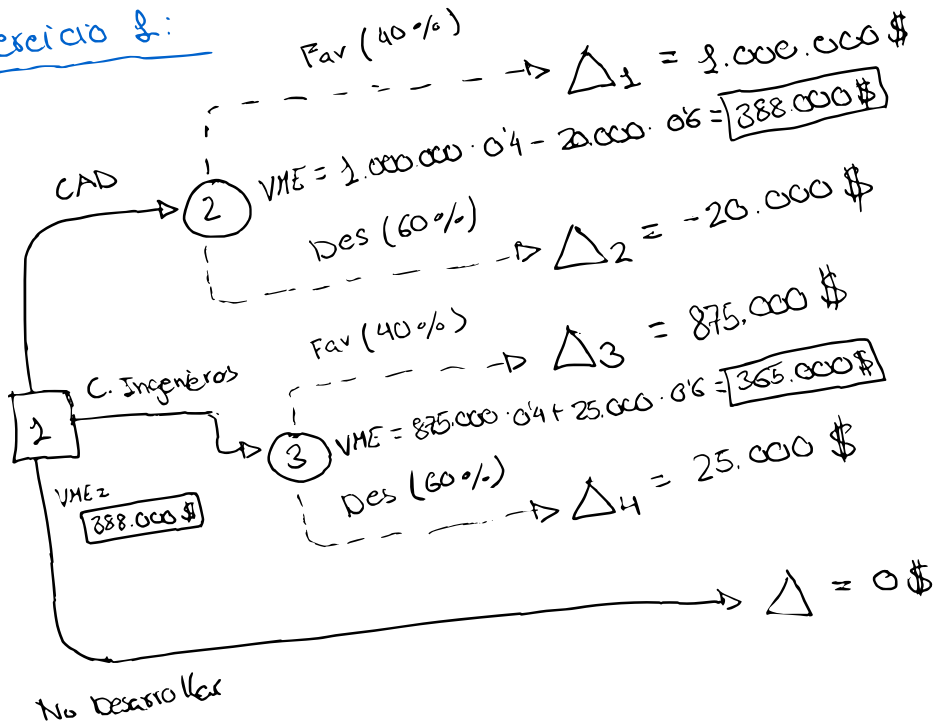 ercicio 1:
Fav (40%)
△1 = 1.000.000 $
VME = 1.000.000 · 0'4 - 20.000 · 0'6 = 388.000 $
CAD
2
Des (60%)
△2 = -20.000 $
Fav (40%)
△3 = 875.000 $
C. Ingenieros
1
3
VME = 875.000 · 0'4 + 25.000 · 0'6 = 365.000 $
Des (60%)
△4 = 25.000 $
VME =
388.000 $
△ = 0 $
No Desarrollar